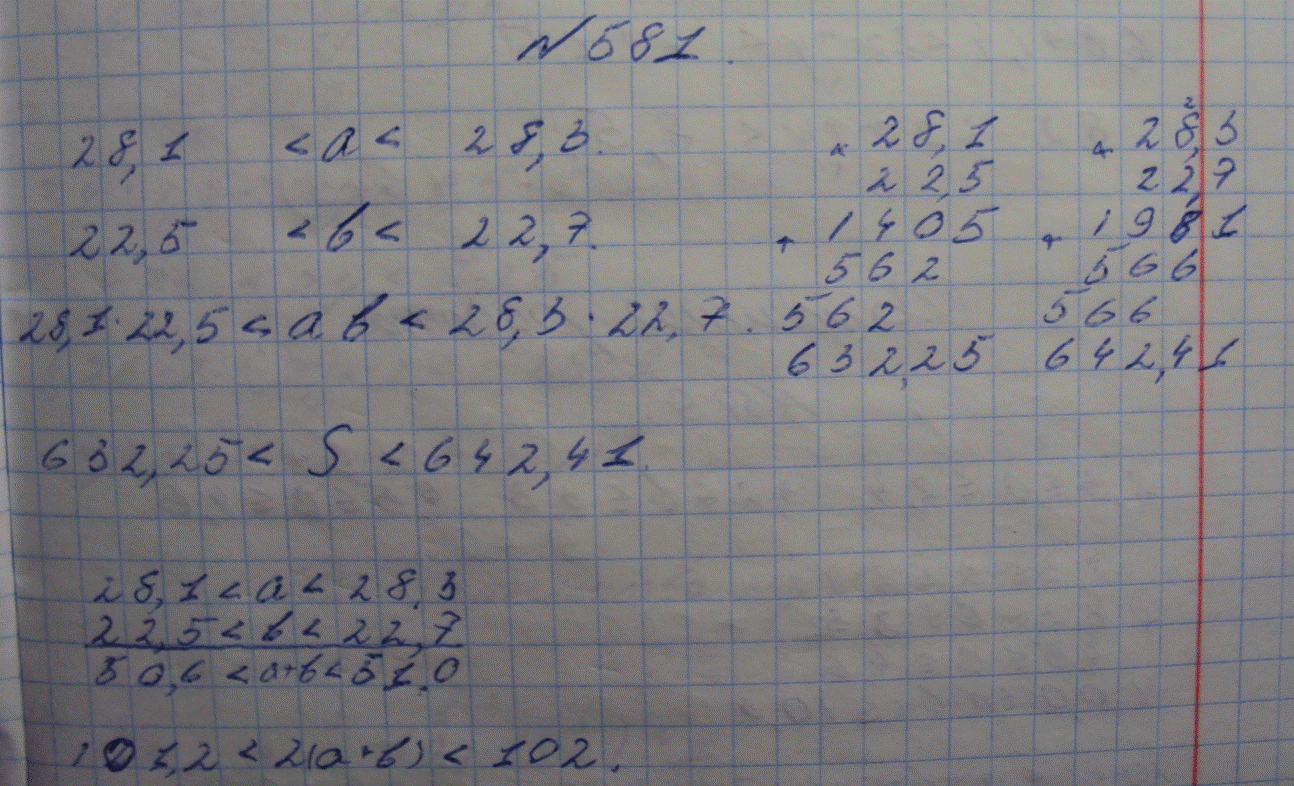 №581.
28,1 < a < 28,3.
22,5 < b < 22,7.
28,1·22,5 < ab < 28,3·22,7.
632,25 < S < 642,41.
× 28,1
22,5
+ 1405
562
562
632,25
2
× 28,3
22,7
+ 1981
566
566
642,41
28,1 < a < 28,3
22,5 < b < 22,7
50,6 < a+b < 51,0
101,2 < 2(a+b) < 102.